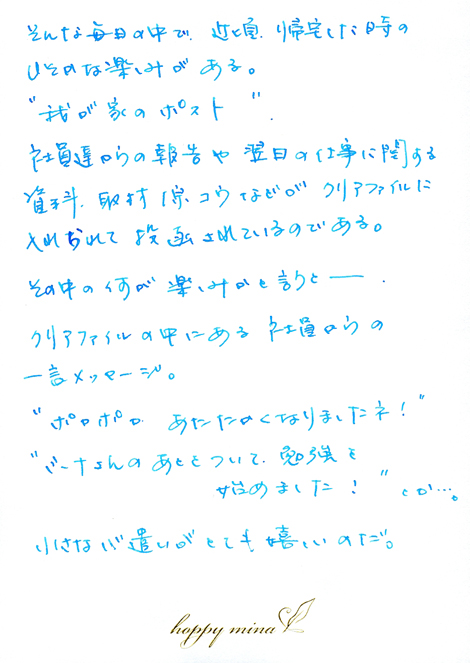 そんな毎日の中で、近頃、帰宅した時の
ひそかな楽しみがある。
"我が家のポスト"。
社員達からの報告や翌日の仕事に関する
資料、取材原コウなどがクリアファイルに
入れられて投函されているのである。
その中の何が楽しみかと言うと――、
クリアファイルの中にある社員からの
一言メッセージ。
"ポカポカ あたたかくなりましたネ!"
さんのあとについて、勉強を
始めました!" とか…。
小さな心遣いがとても嬉しいのだ。
happy mina